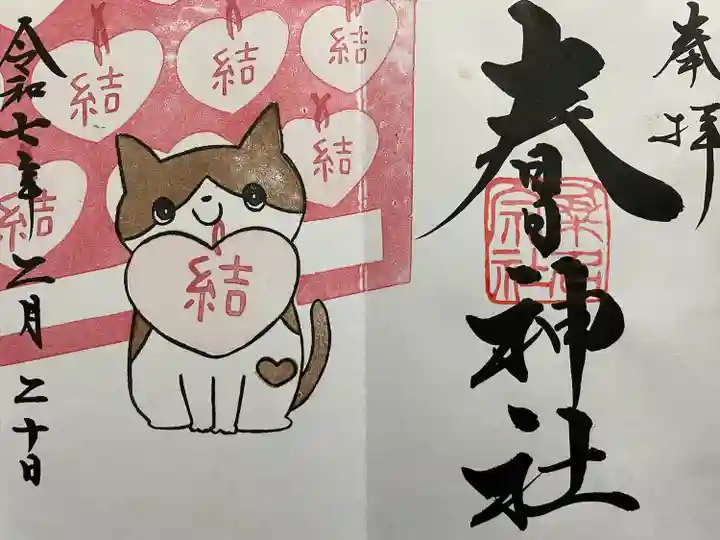 奉拝
春日神社
桑名
宗社
結
結
結
結
結
結
令和七年二月二十日